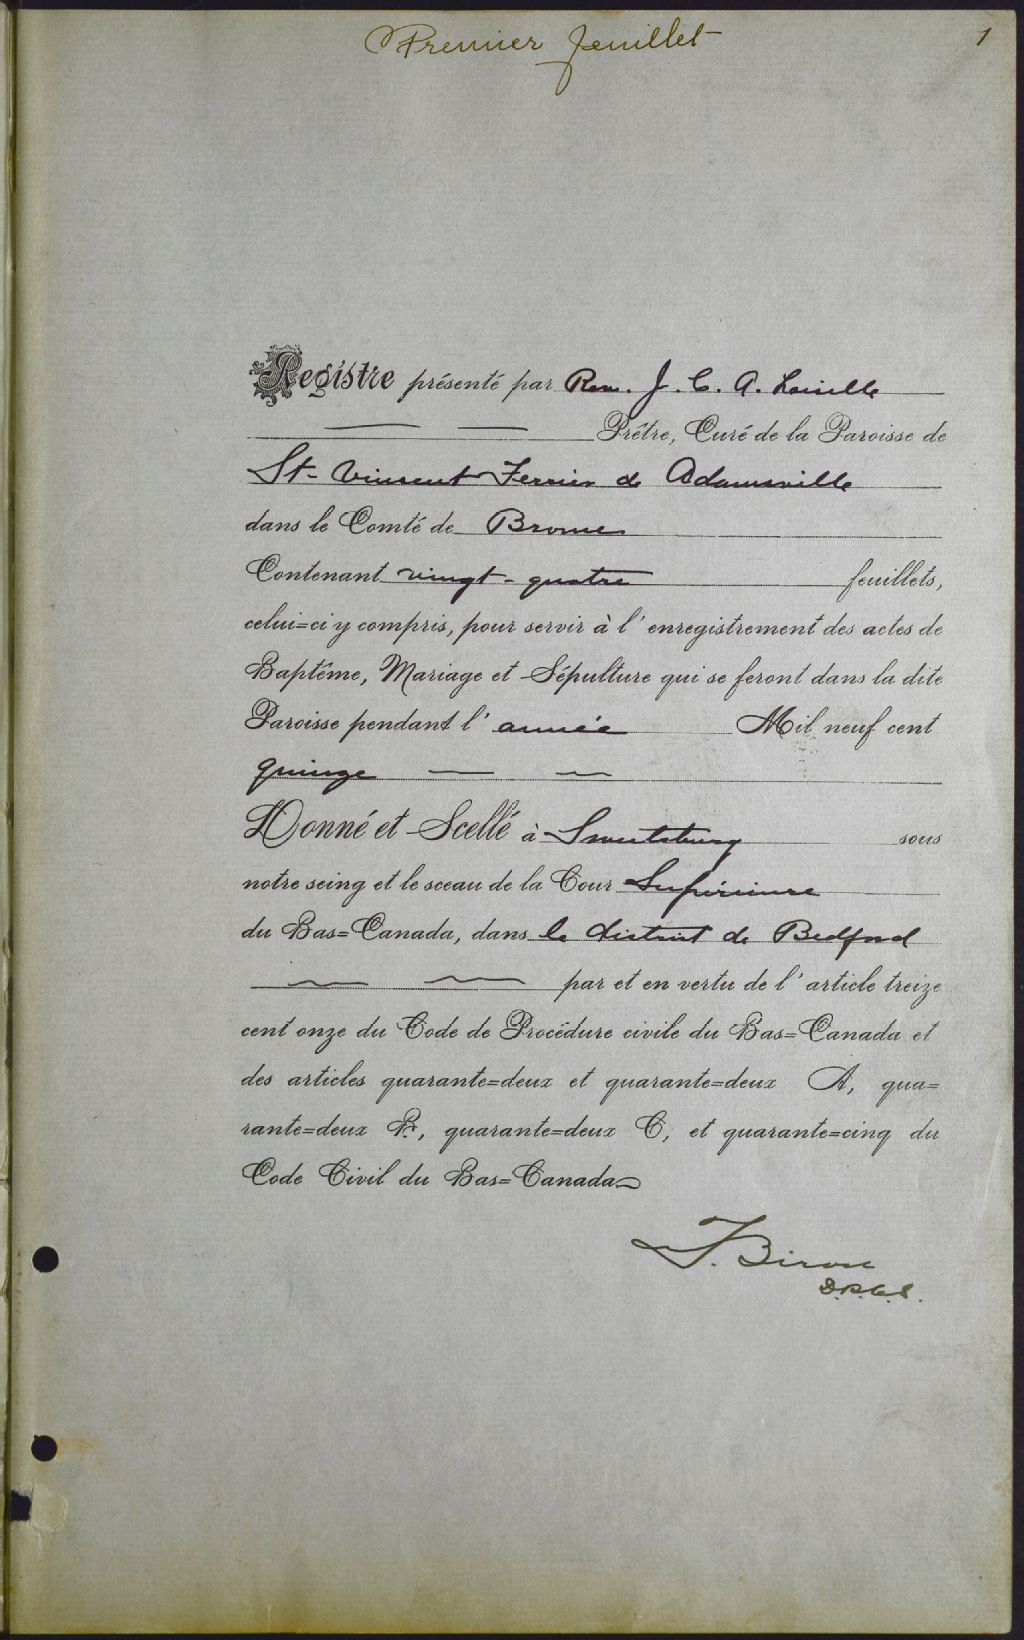 Premier feuillet
1
Registre présenté par Rev. J. C. A. Loiselle
Prêtre, Curé de la Paroisse de
St-Vincent Ferrier de Adamsville
dans le Comté de Brome
Contenant vingt-quatre feuillets,
celui=ci y compris, pour servir à l'enregistrement des actes de
Baptême, Mariage et Sépulture qui se feront dans la dite
Paroisse pendant l'année Mil neuf cent
quinze
Donné et Scellé à Sweetsburg sous
notre seing et le sceau de la Cour Supérieure
du Bas=Canada, dans le district de Bedford
par et en vertu de l'article treize
cent onze du Code de Procédure civile du Bas=Canada et
des articles quarante=deux et quarante=deux A, qua=
rante=deux B, quarante=deux C, et quarante=cinq du
Code Civil du Bas=Canada
Biron
D.P.C.S.